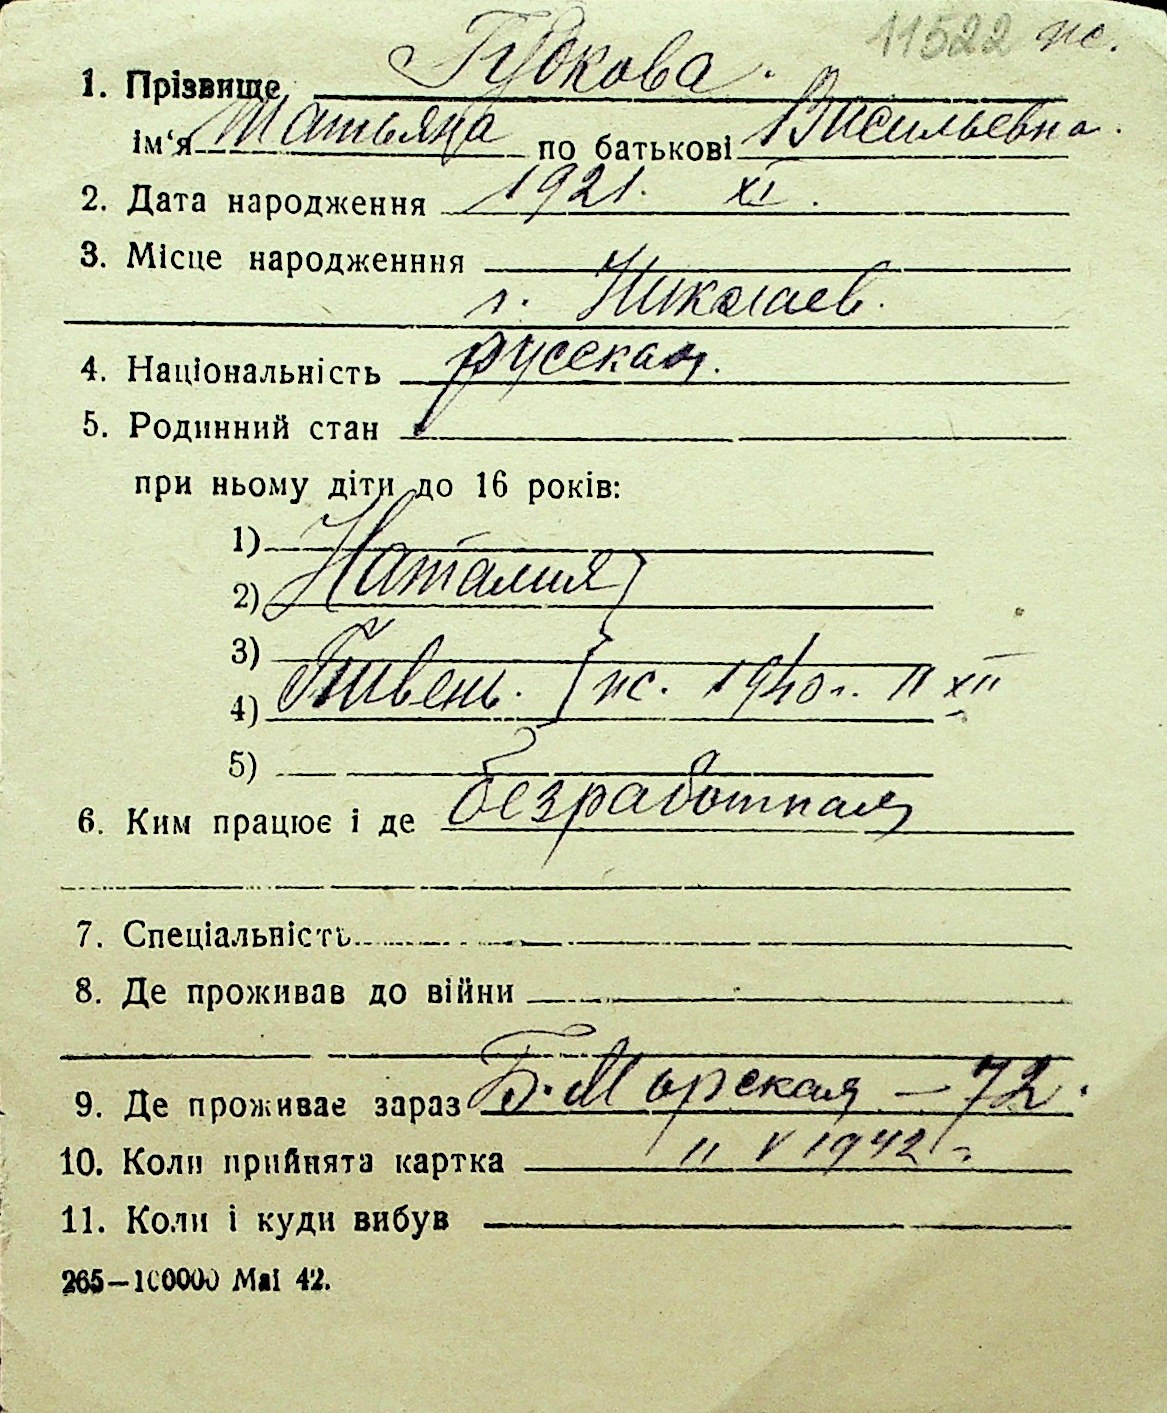 11522 пс.
1. Прізвище Гудкова.
ім‘я Татьяна по батькові Васильевна.
2. Дата народження 1921. XI.
3. Місце народженння
г. Николаев.
4. Національність русская.
5. Родинний стан
при ньому діти до 16 років:
1)
2) Наталия
3)
4) Пивень. пс. 1940 г. 11 XII
5)
6. Ким працює і де безработная
7. Спеціальність
8. Де проживав до війни
9. Де проживає зараз Б. Морская – 72.
10. Коли прийнята картка 11 V 1942 г.
11. Коли і куди вибув
265—100000 Маі 42.